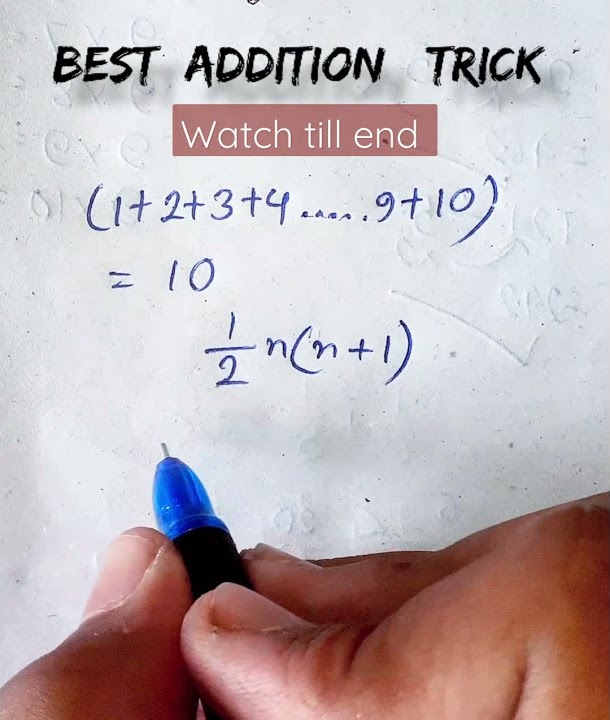 BEST ADDITION TRICK
Watch till end
(1+2+3+4.....9+10)
= 10
1/2 n(n+1)